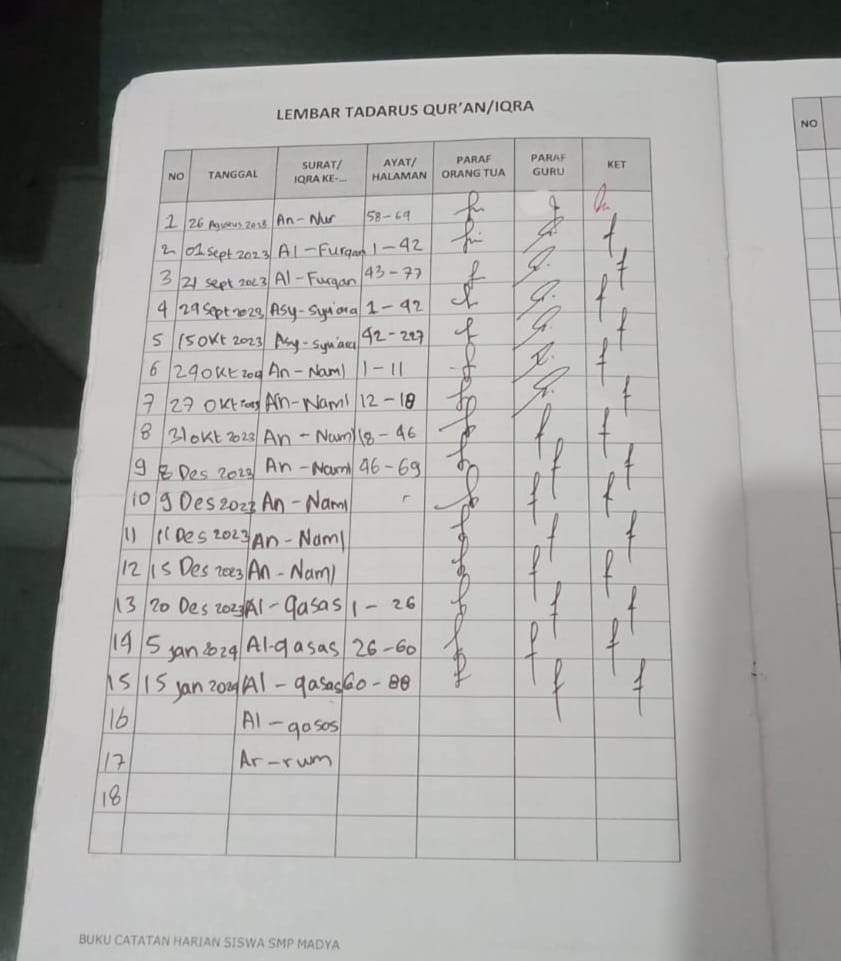 LEMBAR TADARUS QUR'AN/IQRA
NO TANGGAL SURAT/ IQRA KE-... AYAT/ HALAMAN PARAF ORANG TUA PARAF GURU KET
1 26 Agustus An-Nur 58-69
2 01 Sept 2023 Al-Furqan 1-42
3 21 Sept 2023 Al-Furqan 43-77
4 29 Sept 2023 Asy-Syu'ara 1-42
5 15 Okt 2023 Asy-Syu'ara 42-227
6 29 Okt An-Naml 1-11
7 27 Okt An-Naml 12-18
8 31 Okt 2023 An-Naml 18-46
9 8 Des 2023 An-Naml 46-69
10 9 Des 2023 An-Naml
11 11 Des 2023 An-Naml
12 15 Des 2023 An-Naml
13 20 Des 2023 Al-qasas 1-26
14 5 jan 2024 Al-qasas 26-60
15 15 jan 2024 Al-qasas 60-88
16 Al-qosos
17 Ar-rum
18
BUKU CATATAN HARIAN SISWA SMP MADYA
NO